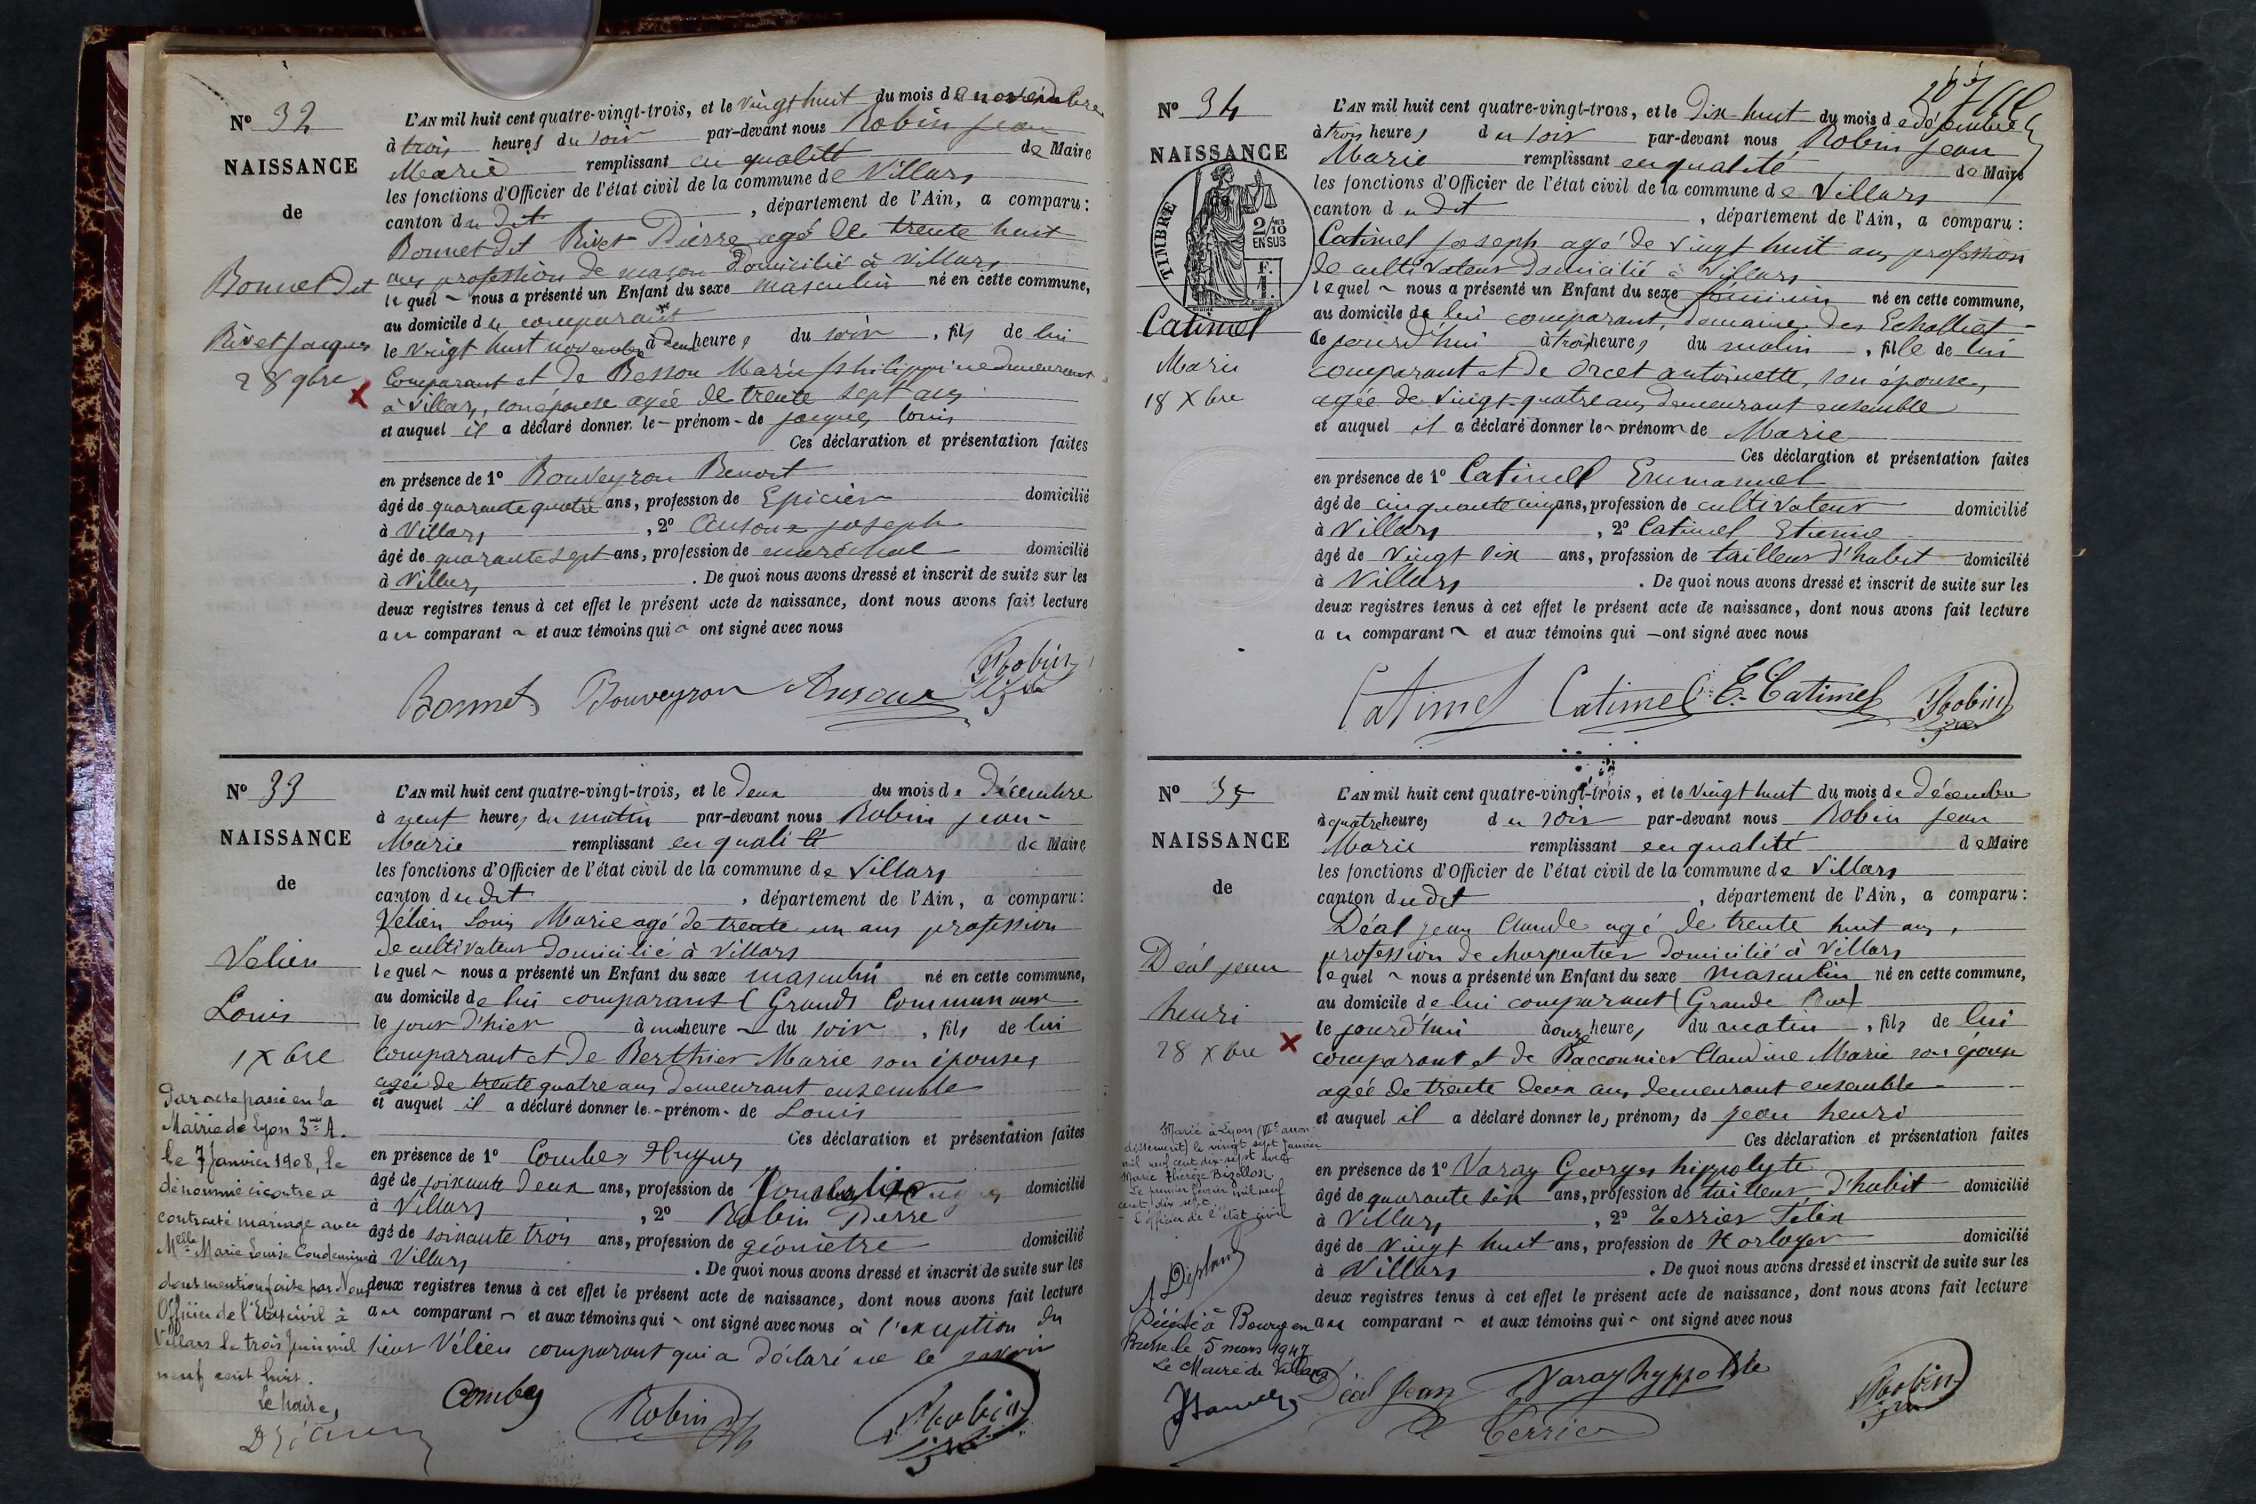 Nº 32
NAISSANCE
de
Bonnet dit
Rivet Jacques
28 9bre
L'AN mil huit cent quatre-vingt-trois, et le vingt huit du mois de novembre
à trois heures du soir par-devant nous Robin Jean
Marie remplissant en qualité de Maire
les fonctions d'Officier de l'état civil de la commune de Villars
canton du dit , département de l'Ain, a comparu:
Bonnet dit Rivet Pierre agé de trente huit
ans profession de maçon domicilié à Villars
lequel ~ nous a présenté un Enfant du sexe masculin né en cette commune,
au domicile du comparant
le vingt huit novembre à deux heures du soir , fils de lui
comparant et de Besson Marie philippine demeurant
à Villars, son épouse agée de trente sept ans
et auquel il a déclaré donner le - prénom - de jacques louis
Ces déclaration et présentation faites
en présence de 1º Bouveyron Benoit
âgé de quarante quatre ans, profession de Epicier domicilié
à Villars , 2º Ansoux joseph
âgé de quarante sept ans, profession de maréchal domicilié
à Villars . De quoi nous avons dressé et inscrit de suite sur les
deux registres tenus à cet effet le présent acte de naissance, dont nous avons fait lecture
au comparant ~ et aux témoins qui ~ ont signé avec nous
Bonnet Bouveyron Ansoux Robin
Nº 33
NAISSANCE
de
Vélien
Louis
1 Xbre
Par acte passé en la
Mairie de Lyon 3me A.
le 7 Janvier 1908, le
dénommé ci contre a
contracté mariage avec
Melle Marie Louise Condemine
dont mention faite par Nous
Officier de l'Etat civil à
Villars le trois Juin mil
neuf cent huit.
Le Maire,
L'AN mil huit cent quatre-vingt-trois, et le deux du mois de décembre
à neuf heures du matin par-devant nous Robin jean-
Marie remplissant en qualité de Maire
les fonctions d'Officier de l'état civil de la commune de Villars
canton du dit , département de l'Ain, a comparu:
Vélien Louis Marie agé de trente un ans profession
de cultivateur domicilié à Villars
lequel ~ nous a présenté un Enfant du sexe masculin né en cette commune,
au domicile de lui comparant (Grands Communaux
le jour d'hier à une heure ~ du soir , fils de lui
comparant et de Berthier Marie son épouse,
agée de trente quatre ans demeurant ensemble
et auquel il a déclaré donner le - prénom - de Louis
Ces déclaration et présentation faites
en présence de 1º Combes Hugues
âgé de soixante deux ans, profession de domicilié
à Villars , 2º Robin Pierre
âgé de soixante trois ans, profession de géomètre domicilié
à Villars . De quoi nous avons dressé et inscrit de suite sur les
deux registres tenus à cet effet le présent acte de naissance, dont nous avons fait lecture
au comparant ~ et aux témoins qui ~ ont signé avec nous à l'exception du
sieur Vélien comparant qui a déclaré ne le savoir
Combes Robin Robin
Nº 34
NAISSANCE
TIMBRE
2/10
EN SUS
F.
1.
Catimel
Marie
18 Xbre
L'AN mil huit cent quatre-vingt-trois, et le dix huit du mois de décembre
à trois heures du soir par-devant nous Robin Jean
Marie remplissant en qualité de Maire
les fonctions d'Officier de l'état civil de la commune de Villars
canton du dit , département de l'Ain, a comparu:
Catimel joseph agé de vingt huit ans profession
de cultivateur domicilié à Villars
lequel ~ nous a présenté un Enfant du sexe féminin né en cette commune,
au domicile de lui comparant, domaine des Echalliet
ce jourd'hui à trois heures du matin , fille de lui
comparant et de Orcet antoinette, son épouse,
agée de vingt quatre ans demeurant ensemble
et auquel il a déclaré donner le ~ prénom ~ de Marie
Ces déclaration et présentation faites
en présence de 1º Catimel Emmanuel
âgé de cinquante cinq ans, profession de cultivateur domicilié
à Villars , 2º Catimel Etienne
âgé de vingt six ans, profession de tailleur d'habit domicilié
à Villars . De quoi nous avons dressé et inscrit de suite sur les
deux registres tenus à cet effet le présent acte de naissance, dont nous avons fait lecture
au comparant ~ et aux témoins qui — ont signé avec nous
Catimel Catimel E. Catimel Robin
Nº 35
NAISSANCE
de
Déal jean
henri
28 Xbre
Marié à Lyon (VIe arron-
dissement) le vingt sept Janvier
mil neuf cent dix-sept avec
Marie Thérèze Bizollon
Le premier février mil neuf
cent dix sept
L'officier de l'état civil
Décédé à Bourg en
Bresse le 5 mars 1947
Le Maire de Villars
L'AN mil huit cent quatre-vingt-trois, et le vingt huit du mois de décembre
à quatre heures du soir par-devant nous Robin Jean
Marie remplissant en qualité de Maire
les fonctions d'Officier de l'état civil de la commune de Villars
canton du dit , département de l'Ain, a comparu:
Déal jean Claude agé de trente huit ans,
profession de charpentier domicilié à Villars
lequel ~ nous a présenté un Enfant du sexe masculin né en cette commune,
au domicile de lui comparant (Grande Rue)
ce jourd'hui à onze heures du matin , fils de lui
comparant et de Bacconnier Claudine Marie son épouse
agée de trente deux ans, demeurant ensemble
et auquel il a déclaré donner les prénoms de jean henri
Ces déclaration et présentation faites
en présence de 1º Varay Georges hippolyte
âgé de quarante six ans, profession de tailleur d'habit domicilié
à Villars , 2º Terrier Félix
âgé de vingt huit ans, profession de Horloger domicilié
à Villars . De quoi nous avons dressé et inscrit de suite sur les
deux registres tenus à cet effet le présent acte de naissance, dont nous avons fait lecture
au comparant ~ et aux témoins qui ~ ont signé avec nous
Déal Jean Varay hyppolite Robin
Terrier